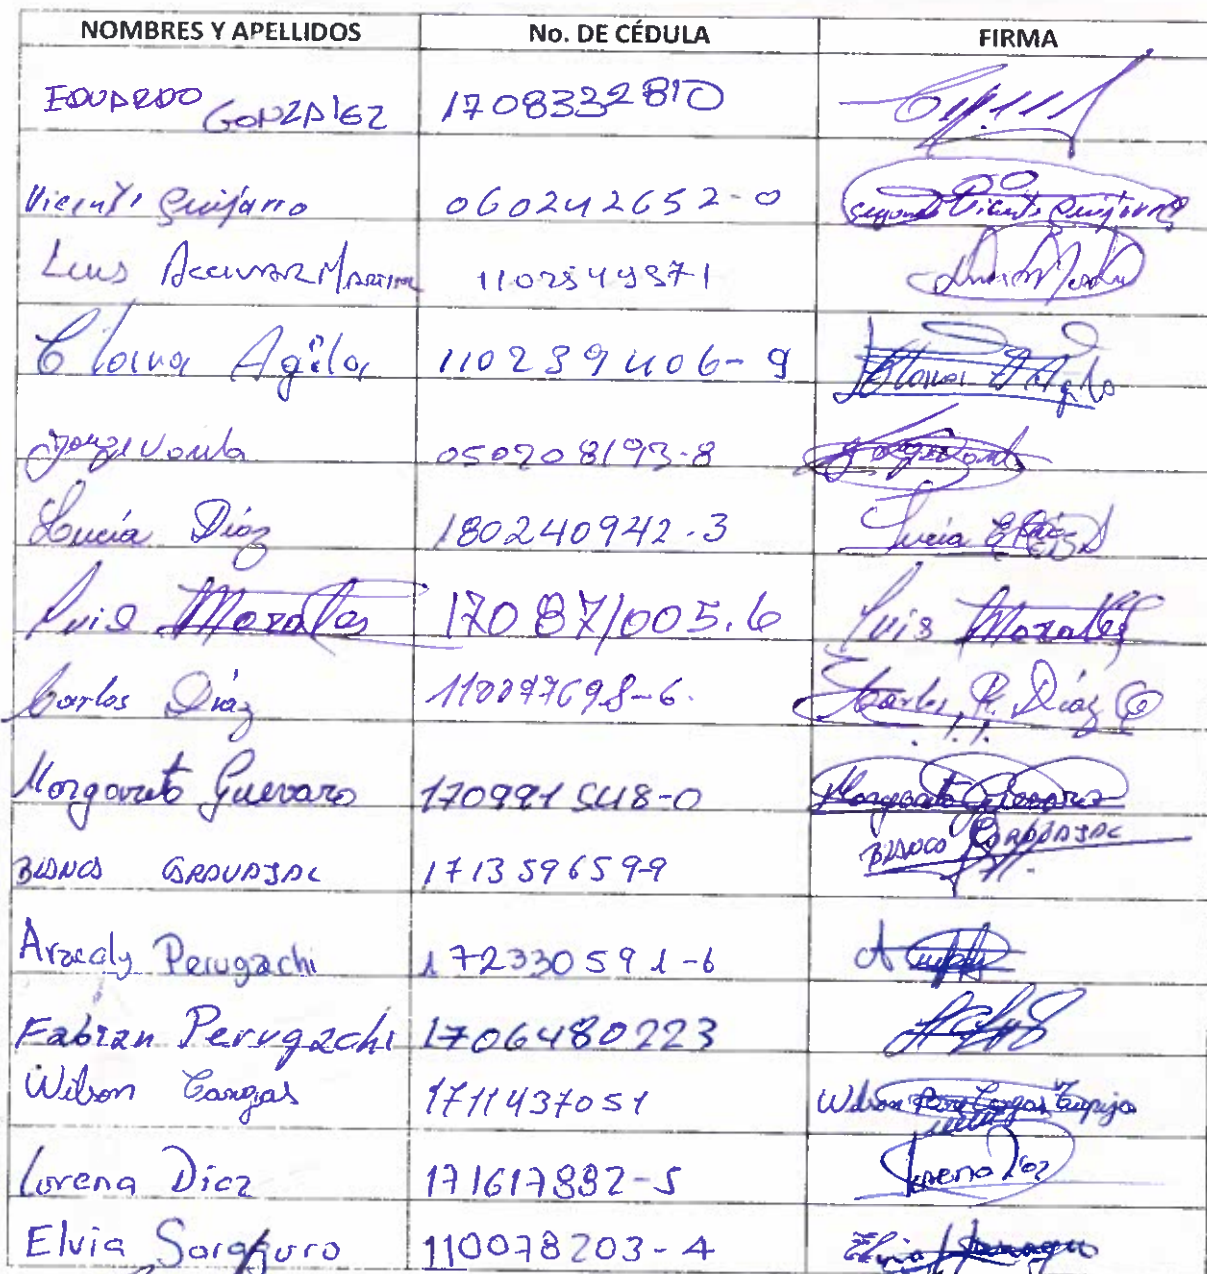 NOMBRES Y APELLIDOS No. DE CÉDULA FIRMA
EDUARDO GONZALEZ 1708332810
Vicente Guijarro 060242652-0 Segundo Vicente Guijarro
Luis 1102549371
Agila 110239406-9 Agila
Jorge 050208193-8 Jorge
Lucía Díaz 180240942-3 Lucía
Luis Morales 170871005.6 Luis Morales
Carlos Díaz 110077698-6. Carlos R. Díaz
Margarita Guevara 170991548-0 Margarita Guevara
BLANCA CARVAJAL 171359659-9 BLANCA CARVAJAL
Aracely Perugachi 172330591-6
Fabian Perugachi 1706480223
Wilson Cangas 1711437051 Wilson Cangas
Lorena Díaz 171617882-5 Lorena Díaz
Elvia Saraguro 110078203-4 Elvia